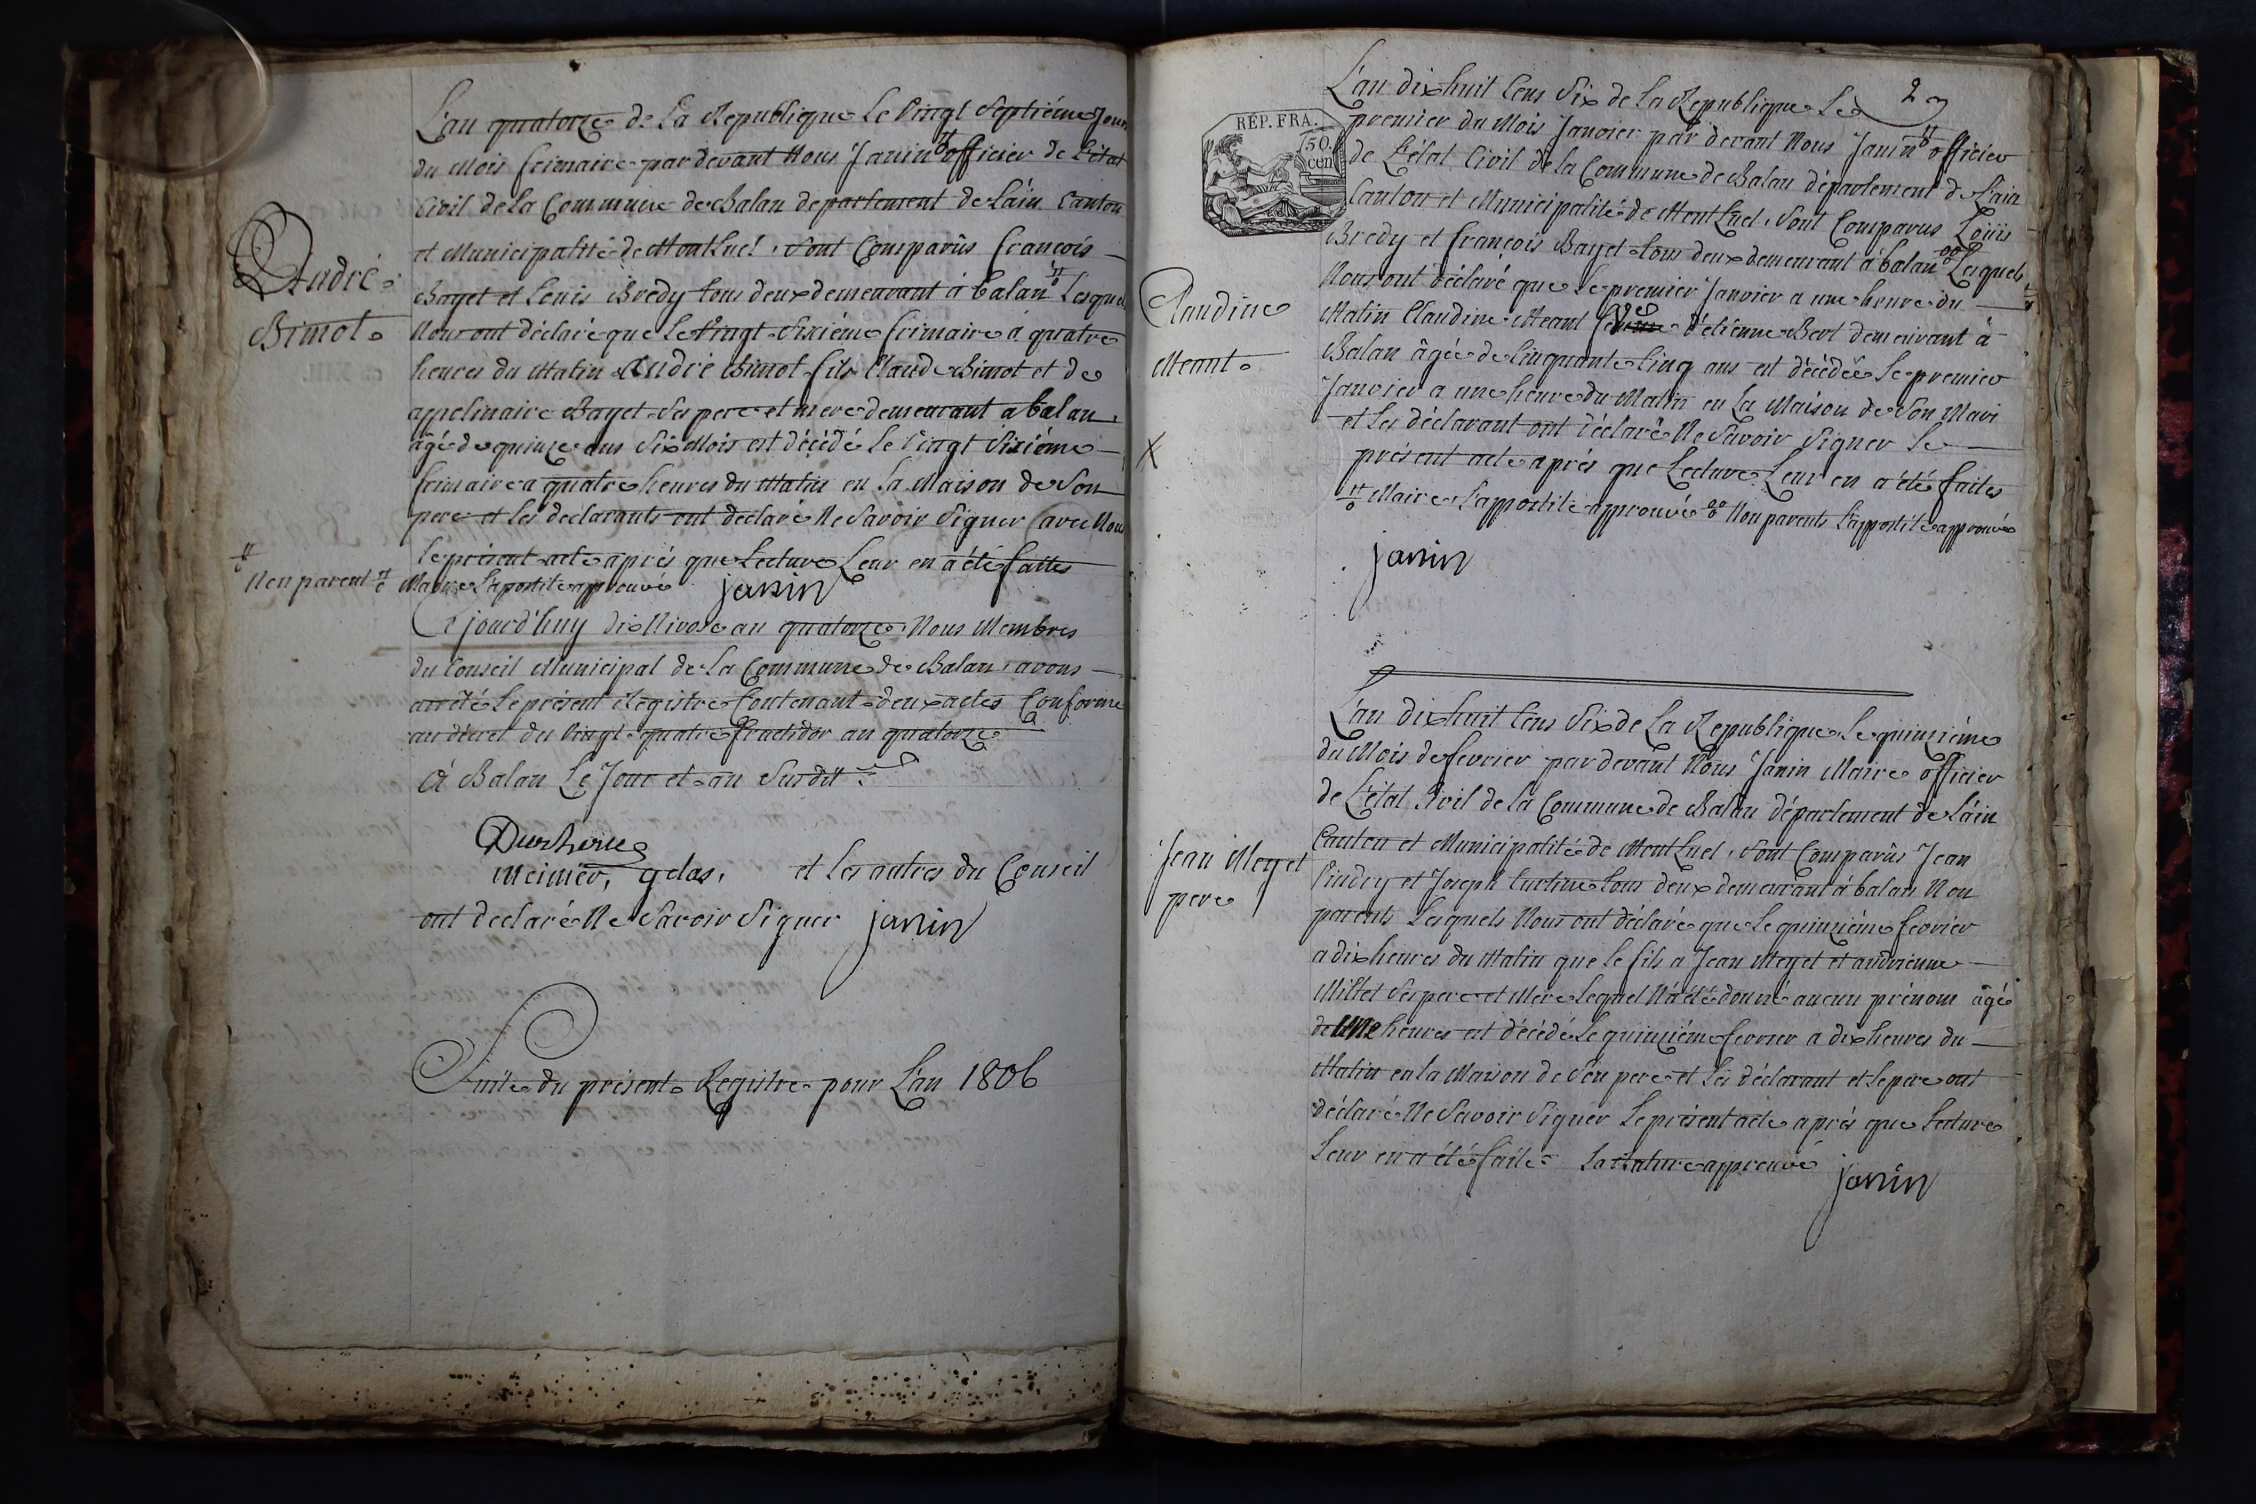 L'an quatorze de La Republique Le Vingt Septiéme Jour
du Mois frimaire par devant Nous Janin officier de L'état
Civil de la Commune de Balan departement de L'ain Canton
et Municipalité de MontLuel, Sont Comparûs francois
Bayet et Louis Bredy tous deux demeurant á balan Lesquels
Nous ont déclaré que le Vingt Sixiéme frimaire á quatre
heures du Matin André Bimot fils Claude Bimot et de
appolinaire Bayet Ses pere et mere demeurant a balan,
âgé de quinze ans Six Mois est décédé le Vingt Sixiéme
frimaire a quatre heures du Matin en La Maison de Son
pere et les declarants ont declare Ne Savoir Signer avec Nous
le présent acte aprés que Lecture Leur en a été faittes
Maire L'apostile approuvé janin
André
Bimot
Non parent
Ce jourd'huy dix Nivose an quatorze Nous Membres
du Conseil Municipal de La Commune de Balan, avons
arrêté le présent Registre Contenant deux actes Conforme
au décret du Vingt quatre fructidor an quatorze
á Balan Le Jour et an Susdit
Meinier, gelas, et les autres du Conseil
ont declaré Ne Sàvoir Signer janin
Suite du présent Registre pour L'an 1806
REP. FRA.
50
cen
2
L'an dix huit Cens Six de La Republique Le
premier du Mois Janvier par devant Nous Janin officier
de L'état Civil de la Commune de Balan département de L'ain
Canton et Municipalité de MontLuel, Sont Comparus Louis
Bredy et françois Bayet tous deux demeurant á balan Lesquels
Nous ont déclaré que Le premier Janvier a une heure du
Matin Claudine Meant d'etienne Bert demeurant á
Balan âgée de Cinquante Cinq ans est décédée le premier
Janvier a une heure du Matin en La Maison de Son Mari
et Les déclarant ont déclaré Ne Savoir Signer Le
présent acte aprés que Lecture Leur en a été faites
Maire L'appostile approuvée Non parents L'appostile approuvée
janin
Claudine
Meant
X
L'an dix huit Cens Six de La Republique, Le quinziéme
du Mois de fevrier par devant Nous Janin Maire officier
de L'état Civil de la Commune de Balan département de L'áin
Canton et Municipalité de MontLuel, Sont Comparûs Jean
et Joseph tous deux demeurant á balan Non
parents Lesquels Nous ont déclaré que Le quinziéme fevrier
a dix heures du Matin que le fils a Jean Meyet et andrienne
Millet Ses pere et Mere Lequel N'a été donné aucun prénom âgé
de une heures est décédé Le quinziéme fevrier a dix heures du
Matin en la Maison de Son pere et Les déclarant et le pere ont
déclaré Ne Savoir Signer Le présent acte aprés que Lecture
Leur en a été faite La rature approuvé janin
Jean Meyet
pere